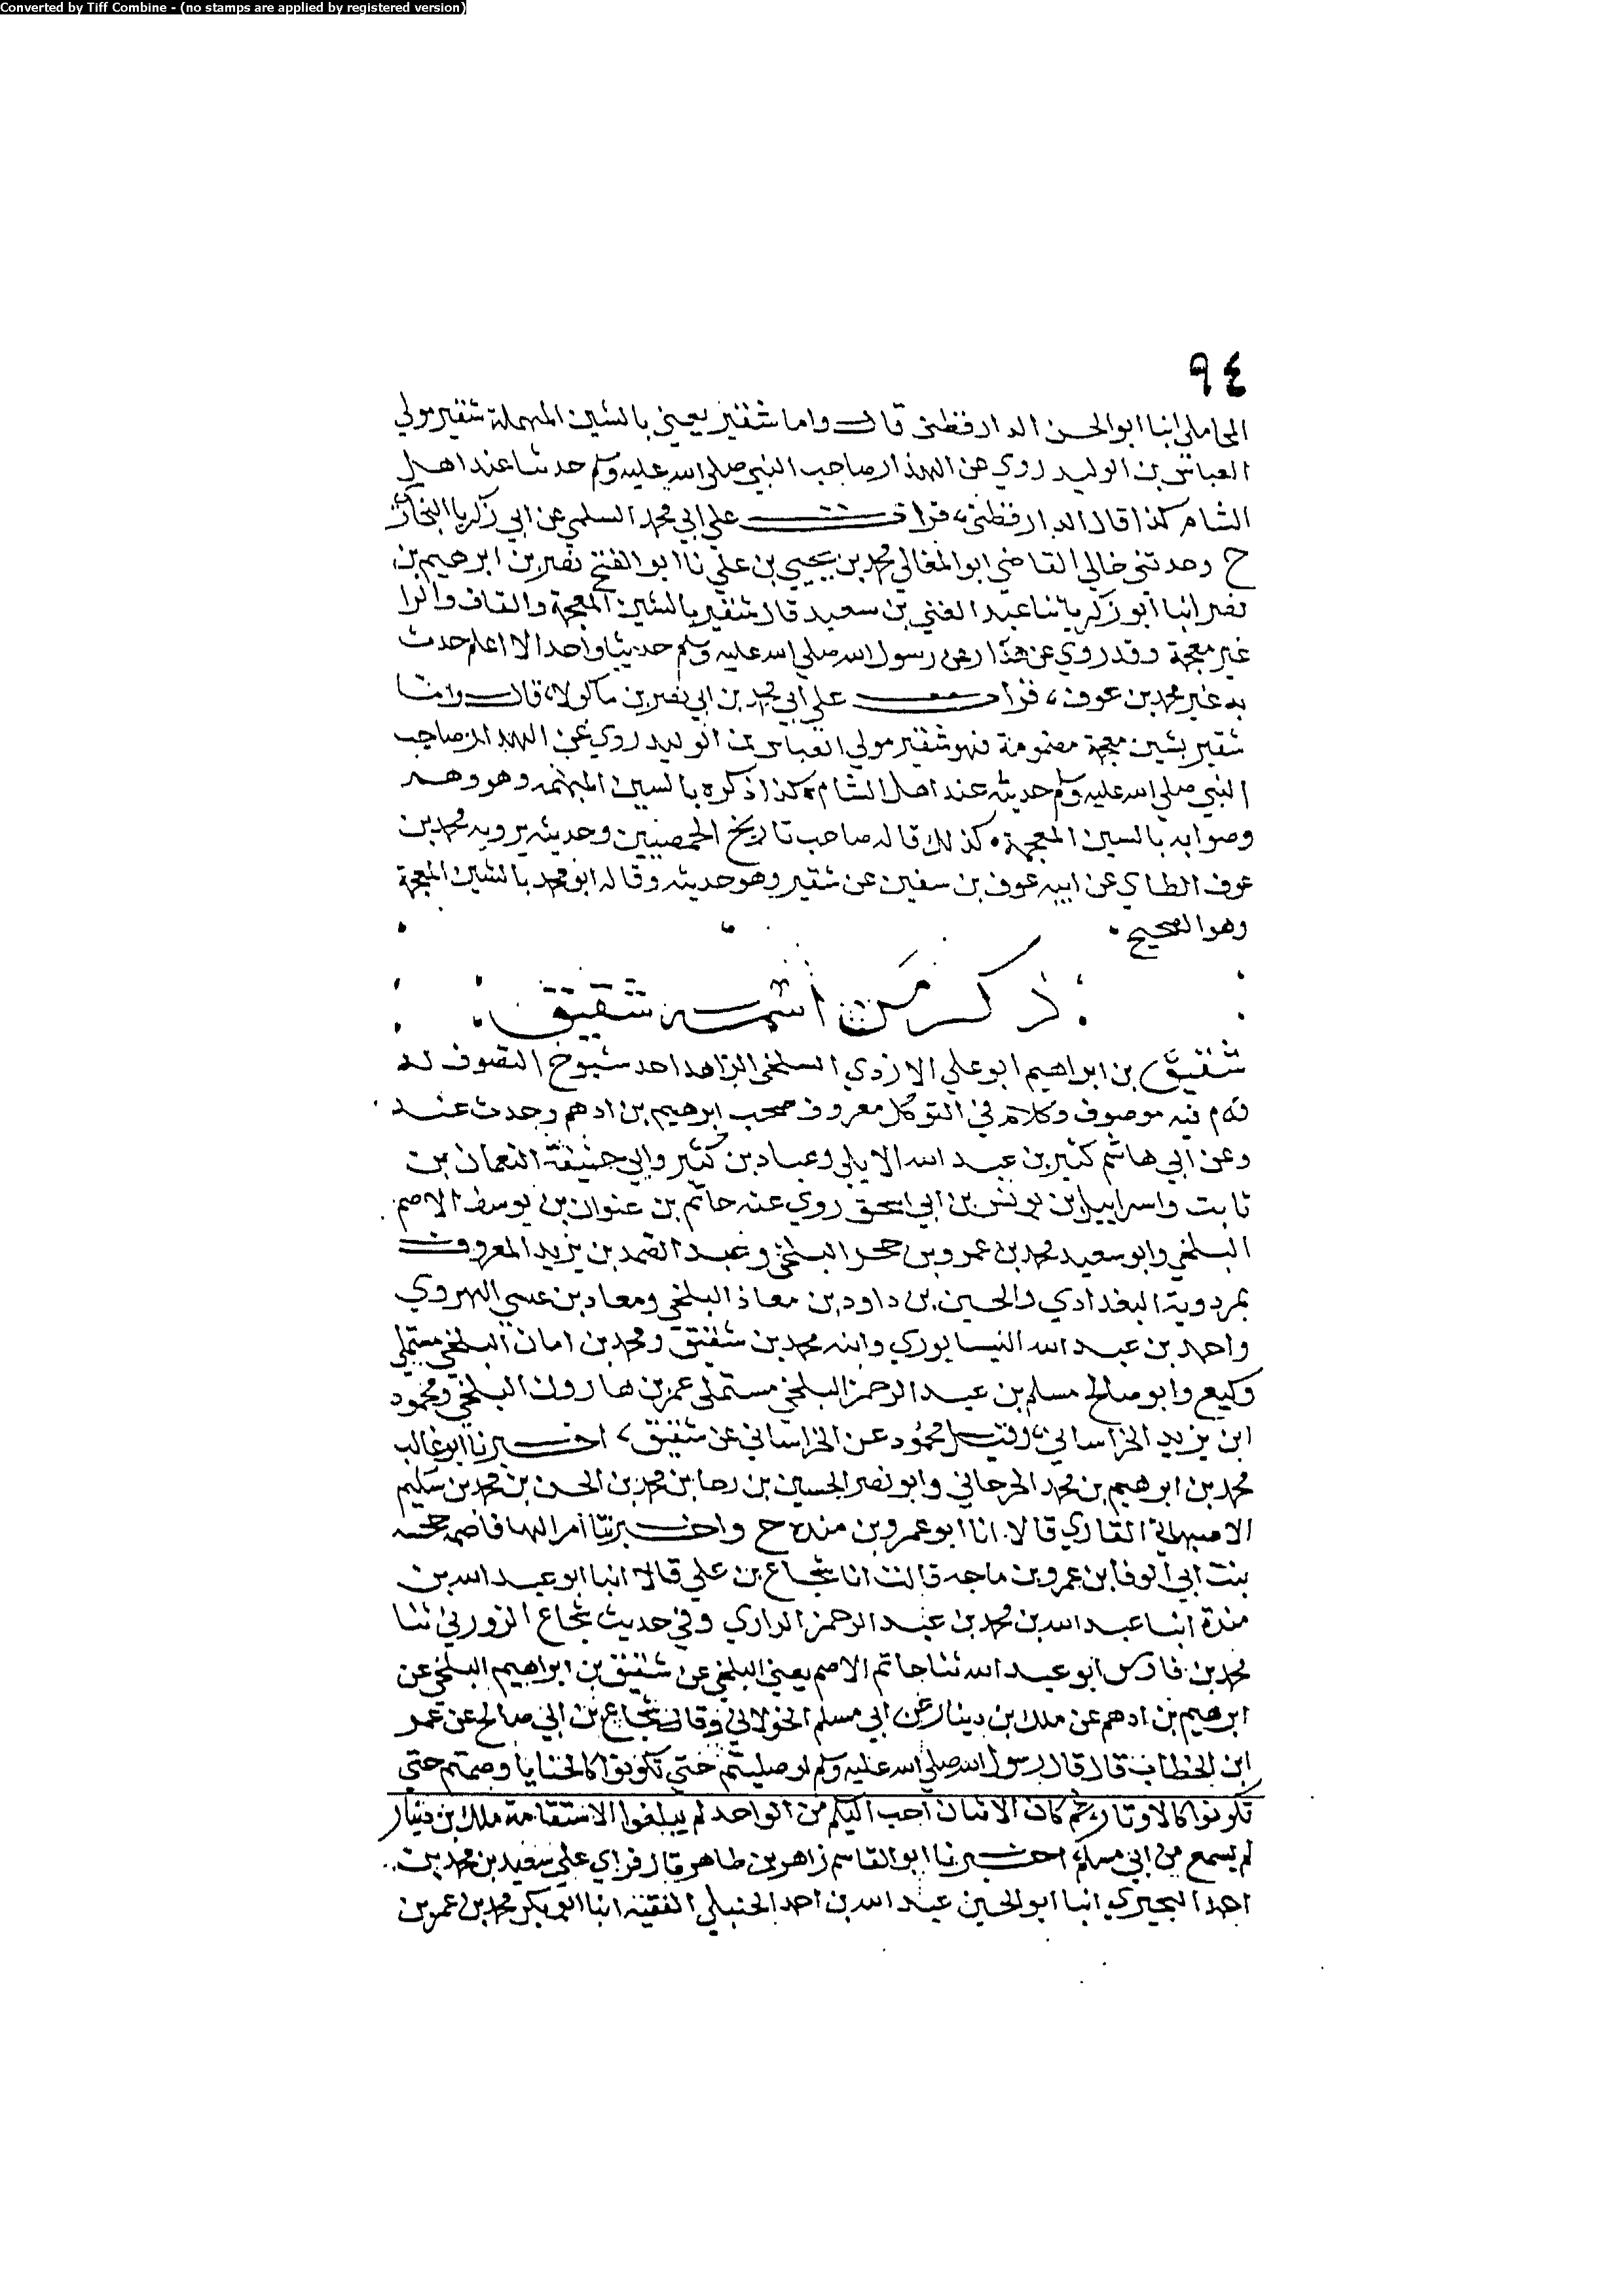 Converted by Tiff Combine - (no stamps are applied by registered version)
٩٤
المحاملي انبا ابوالحسن الدارقطني قال واما شقير يعني بالسين المهملة شقير مولي
العباس بن الوليد روي عن الهدار صاحب النبي صلي الله عليه وسلم حدثنا عند اهل
الشام كذا قال الدارقطني، قرات علي ابي محمد السلمي عن ابي زكريا البخاري
ح وحدثني خالي القاضي ابو المعالي محمد بن يحيي بن علي نا ابو الفتح نصر بن ابرهيم بن
نصر انبا ابو زكريا ثنا عبد الغني بن سعيد قال شقير بالشين المعجمة والقاف والرا
غير معجمة وقد روي عن هدار عن رسول الله صلي الله عليه وسلم حديثا واحدا لا اعلم حدث
به غير محمد بن عوف، قرات علي ابي محمد بن ابي نصر بن ماكولا، قال واما
شقير بشين معجمة مضمومة فهو شقير مولي العباس بن الوليد روي عن الهدار صاحب
النبي صلي الله عليه وسلم حديثه عند اهل الشام كذا ذكره بالسين المبهمه وهو وهم
وصوابه بالسين المعجمة كذلك قاله صاحب تاريخ الحمصيين وحديثه يرويه محمد بن
عوف الطاي عن ابيه عوف بن سفين عن شقير وهو حديثه وقاله ابو محمد بالشين المعجمة
وهو الصحيح
ذكر من اسمه شقيق
شقيق بن ابراهيم ابو علي الازدي البلخي الزاهد احد شيوخ التصوف له
قدم فيه موصوف وكلام في التوكل معروف صحب ابرهيم بن ادهم وحدث عنه
وعن ابي هاشم كثير بن عبد الله الايلي وعباد بن كثير وابي حنيفة النعمان بن
ثابت واسراييل بن يونس بن ابي اسحق روي عنه حاتم بن عنوان بن يوسف الاصم
البلخي وابو سعيد محمد بن عمرو بن حجر البلخي وعبد الصمد بن يزيد المعروف
بمردوية البغدادي والحسين بن داود بن معاذ البلخي ومعاد بن عيسي الهروي
واحمد بن عبد الله النيسابوري وابنه محمد بن شقيق ومحمد بن امان البلخي مستملي
وكيع وابو صالح مسلم بن عبد الرحمن البلخي مستملي عمر بن هارون البلخي ومحمود
ابن يزيد الخراساني، وقيل محمود عن الخراساني عن شقيق، اخبرنا ابو غالب
محمد بن ابرهيم بن محمد الجرجاني وابو نصر الحسين بن رجا بن محمد بن الحسن بن محمد بن سليم
الاصبهاني القاري قالا انا ابو عمرو بن منده ح واخبرتنا ام البها فاطمه
بنت ابي الوفا بن عمرو بن ماجه قالت انا شجاع بن علي قالا انبا ابو عبد الله بن
مندة انبا عبد الله بن محمد بن عبد الرحمن الرازي وفي حديث شجاع الزوزني ثنا
محمد بن فارس ابو عبد الله ثنا حاتم الاصم يعني البلخي عن شقيق بن ابراهيم البلخي عن
ابرهيم بن ادهم عن ملك بن دينار عن ابي مسلم الخولاني وقال شجاع بن ابي صالح عن عمر
ابن الخطاب قال قال رسول الله صلي الله عليه وسلم لو صليتم حتي تكونوا كالحنايا وصمتم حتي
تكونوا كالاوتار ثم كان الاثنان احب اليكم من الواحد لم يبلغوا الاستقامة ملك بن دينار
لم يسمع من ابي مسلم، اخبرنا ابو القاسم زاهر بن طاهر قال قراي علي سعيد بن محمد بن
احمد البحيري انبا ابو الحسين عبد الله بن احمد الحنبلي الفقيه انبا ابو بكر محمد بن عمر بن